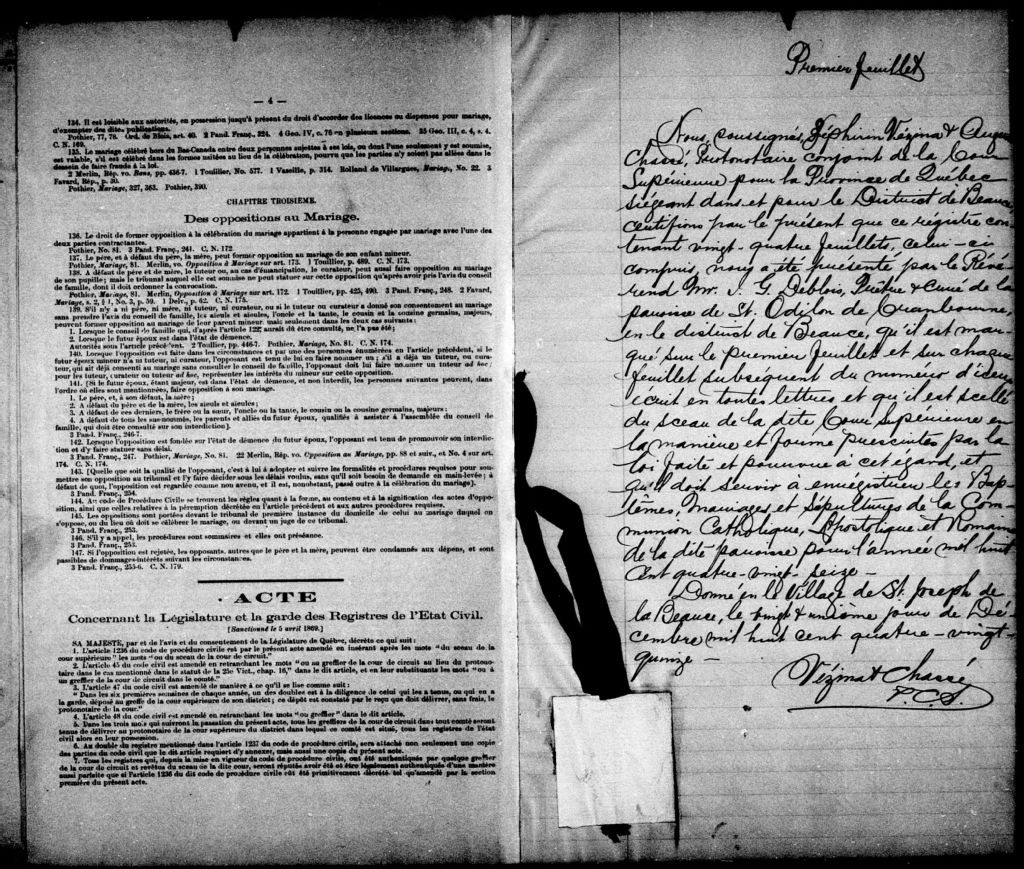 — 4 —
134. Il est loisible aux autorités, en possession jusqu'à présent du droit d'accorder des licences ou dispenses pour mariage,
d'exempter des dites publications.
Pothier, 77, 78. Ord. de Blois, art. 40. 2 Pand. Franç., 324. 4 Geo. IV, c. 76 en plusieurs sections. 35 Geo. III, c. 4, s. 4.
C. N. 169.
135. Le mariage célébré hors du Bas-Canada entre deux personnes sujettes à ses lois, ou dont l'une seulement y est soumise,
est valable, s'il est célébré dans les formes usitées au lieu de la célébration, pourvu que les parties n'y soient pas allées dans le
dessein de faire fraude à la loi.
2 Merlin, Rép. vo. Bans, pp. 436-7. 1 Touillier, No. 577. 1 Vaseille, p. 314. Rolland de Villargues, Mariage, No. 22. 3
Favard, Rép., p. 30.
Pothier, Mariage, 327, 363. Pothier, 390.
CHAPITRE TROISIÈME.
Des oppositions au Mariage.
136. Le droit de former opposition à la célébration du mariage appartient à la personne engagée par mariage avec l'une des
deux parties contractantes.
Pothier, No. 81. 3 Pand. Franç., 241. C. N. 172.
137. Le père, et à défaut du père, la mère, peut former opposition au mariage de son enfant mineur.
Pothier, Mariage, 81. Merlin, vo. Opposition à Mariage sur art. 173. 1 Touillier, p. 489. C. N. 173.
138. A défaut de père et de mère, le tuteur ou, au cas d'émancipation, le curateur, peut aussi faire opposition au mariage
de son pupille; mais le tribunal auquel elle est soumise ne peut statuer sur cette opposition qu'après avoir pris l'avis du conseil
de famille, dont il doit ordonner la convocation.
Pothier, Mariage, 81. Merlin, Opposition à Mariage sur art. 172. 1 Touillier, pp. 425, 490. 3 Pand. Franç., 248. 2 Favard,
Mariage, s. 2, § 1, No. 3, p. 59. 1 Delv., p. 62. C. N. 175.
139. S'il n'y a ni père, ni mère, ni tuteur, ni curateur, ou si le tuteur ou curateur a donné son consentement au mariage
sans prendre l'avis du conseil de famille, les aïeuls et aïeules, l'oncle et la tante, le cousin et la cousine germains, majeurs,
peuvent former opposition au mariage de leur parent mineur mais seulement dans les deux cas suivants:
1. Lorsque le conseil de famille qui, d'après l'article 122, aurait dû être consulté, ne l'a pas été;
2. Lorsque le futur époux est dans l'état de démence.
Autorités sous l'article précédent. 2 Touillier, pp. 446-7. Pothier, Mariage, No. 81. C. N. 174.
140. Lorsque l'opposition est faite dans les circonstances et par une des personnes énumérées en l'article précédent, si le
futur époux mineur n'a ni tuteur, ni curateur, l'opposant est tenu de lui en faire nommer un; s'il a déjà un tuteur, ou cura-
teur, qui ait déjà consenti au mariage sans consulter le conseil de famille, l'opposant doit lui faire nommer un tuteur ad hoc;
pour les tuteur, curateur ou tuteur ad hoc, représenter les intérêts du mineur sur cette opposition.
141. [Si le futur époux, étant majeur, est dans l'état de démence, et non interdit, les personnes suivantes peuvent, dans
l'ordre où elles sont mentionnées, faire opposition à son mariage.
1. Le père, et, à son défaut, la mère;
2. A défaut du père et de la mère, les aïeuls et aïeules;
3. A défaut de ces derniers, le frère ou la sœur, l'oncle ou la tante, le cousin ou la cousine germains, majeurs;
4. A défaut de tous les sus-nommés, les parents et alliés du futur époux, qualifiés à assister à l'assemblée du conseil de
famille, qui doit être consultée sur son interdiction].
3 Pand. Franç., 246-7.
142. Lorsque l'opposition est fondée sur l'état de démence du futur époux, l'opposant est tenu de promouvoir son interdic-
tion et d'y faire statuer sans délai.
3 Pand. Franç., 247. Pothier, Mariage, No. 81. 22 Merlin, Rép. vo. Opposition au Mariage, pp. 88 et suiv., et No. 4 sur art.
174. C. N. 174.
143. [Quelle que soit la qualité de l'opposant, c'est à lui à adopter et suivre les formalités et procédures requises pour sou-
mettre son opposition au tribunal et l'y faire décider sous les délais voulus, sans qu'il soit besoin de demande en main-levée; à
défaut de quoi, l'opposition est regardée comme non avenu, et il est, nonobstant, passé outre à la célébration du mariage].
3 Pand. Franç., 254.
144. Au code de Procédure Civile se trouvent les règles quant à la forme, au contenu et à la signification des actes d'oppo-
sition, ainsi que celles relatives à la péremption décrétée en l'article précédent et aux autres procédures requises.
145. Les oppositions sont portées devant le tribunal de première instance du domicile de celui au mariage duquel on
s'oppose, ou du lieu où doit se célébrer le mariage, ou devant un juge de ce tribunal.
3 Pand. Franç., 253.
146. S'il y a appel, les procédures sont sommaires et elles ont préséance.
3 Pand. Franç., 253.
147. Si l'opposition est rejetée, les opposants, autres que le père et la mère, peuvent être condamnés aux dépens, et sont
passibles de dommages-intérêts suivant les circonstances.
3 Pand. Franç., 255-6. C. N. 179.
ACTE
Concernant la Législature et la garde des Registres de l'Etat Civil.
[Sanctionné le 5 avril 1869.]
SA MAJESTÉ, par et de l'avis et du consentement de la Législature de Québec, décrète ce qui suit:
1. L'article 1236 du code de procédure civile est par le présent acte amendé en insérant après les mots "du sceau de la
cour supérieure" les mots "ou du sceau de la cour de circuit."
2. L'article 45 du code civil est amendé en retranchant les mots "ou au greffier de la cour de circuit au lieu du protono-
taire dans le cas mentionné dans le statut de la 25e Vict., chap. 16," dans le dit article, et en leur substituants les mots "ou à
un greffier de la cour de circuit dans le comté."
3. L'article 47 du code civil est amendé de manière à ce qu'il se lise comme suit:
"Dans les six premières semaines de chaque année, un des doubles est à la diligence de celui qui les a tenus, ou qui en a
la garde, déposé au greffe de la cour supérieure de son district; ce dépôt est constaté par le reçu que doit délivrer, sans frais, le
protonotaire de la cour."
4. L'article 48 du code civil est amendé en retranchant les mots "ou greffier" dans le dit article.
5. Dans les trois mois qui suivront la passation du présent acte, tous les greffiers de la cour de circuit dans tout comté seront
tenus de délivrer au protonotaire de la cour supérieure du district dans lequel ce comté est situé, tous les registres de l'état
civil alors en leur possession.
6. Au double du registre mentionné dans l'article 1237 du code de procédure civile, sera attaché non seulement une copie
des parties du code civil que le dit article requiert d'y annexer, mais aussi une copie du présent acte.
7. Tous les registres qui, depuis la mise en vigueur du code de procédure civile, ont été authentiqués par quelque greffier
de la cour de circuit et revêtus du sceau de la dite cour, seront réputés avoir été et être légalement authentiqués d'une manière
aussi parfaite que si l'article 1236 du dit code de procédure civile eût été primitivement décrété tel qu'amendé par la section
première du présent acte.
Premier feuillet
Nous, soussignés, Zéphirin Vézina & Augus
Chassé, Protonotaire conjoint de la Cour
Supérieure pour la Province de Québec
siégeant dans et pour le District de Beauce,
certifions par le présent que ce régistre con-
tenant vingt-quatre feuillets, celui-ci
compris, nous a été présenté par le Révé-
rend Mr. J. G. Deblois, Prêtre & Curé de la
paroisse de St. Odilon de Cranbourne,
en le district de Beauce, qu'il est mar-
qué sur le premier feuillet et sur chaque
feuillet subséquent du numéro d'icelui
écrit en toutes lettres et qu'il est scellé
du sceau de la dite Cour Supérieure en
la manière et forme prescrites par la
loi faite et pourvue à cet égard, et
qu'il doit servir à enregistrer les Bap-
têmes, Mariages et Sépultures de la Com-
munion Catholique, Apostolique et Romaine
de la dite paroisse pour l'année mil huit
cent quatre-vingt-seize —
Donné en le Village de St. Joseph de
la Beauce, le vingt & unième jour de Dé-
cembre mil huit cent quatre-vingt-
quinze —
Vézina & Chassé
P.C.S.